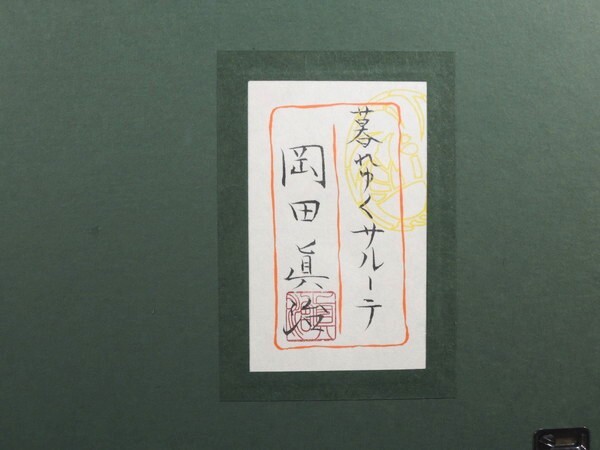 暮れゆくサルーテ
岡田眞治